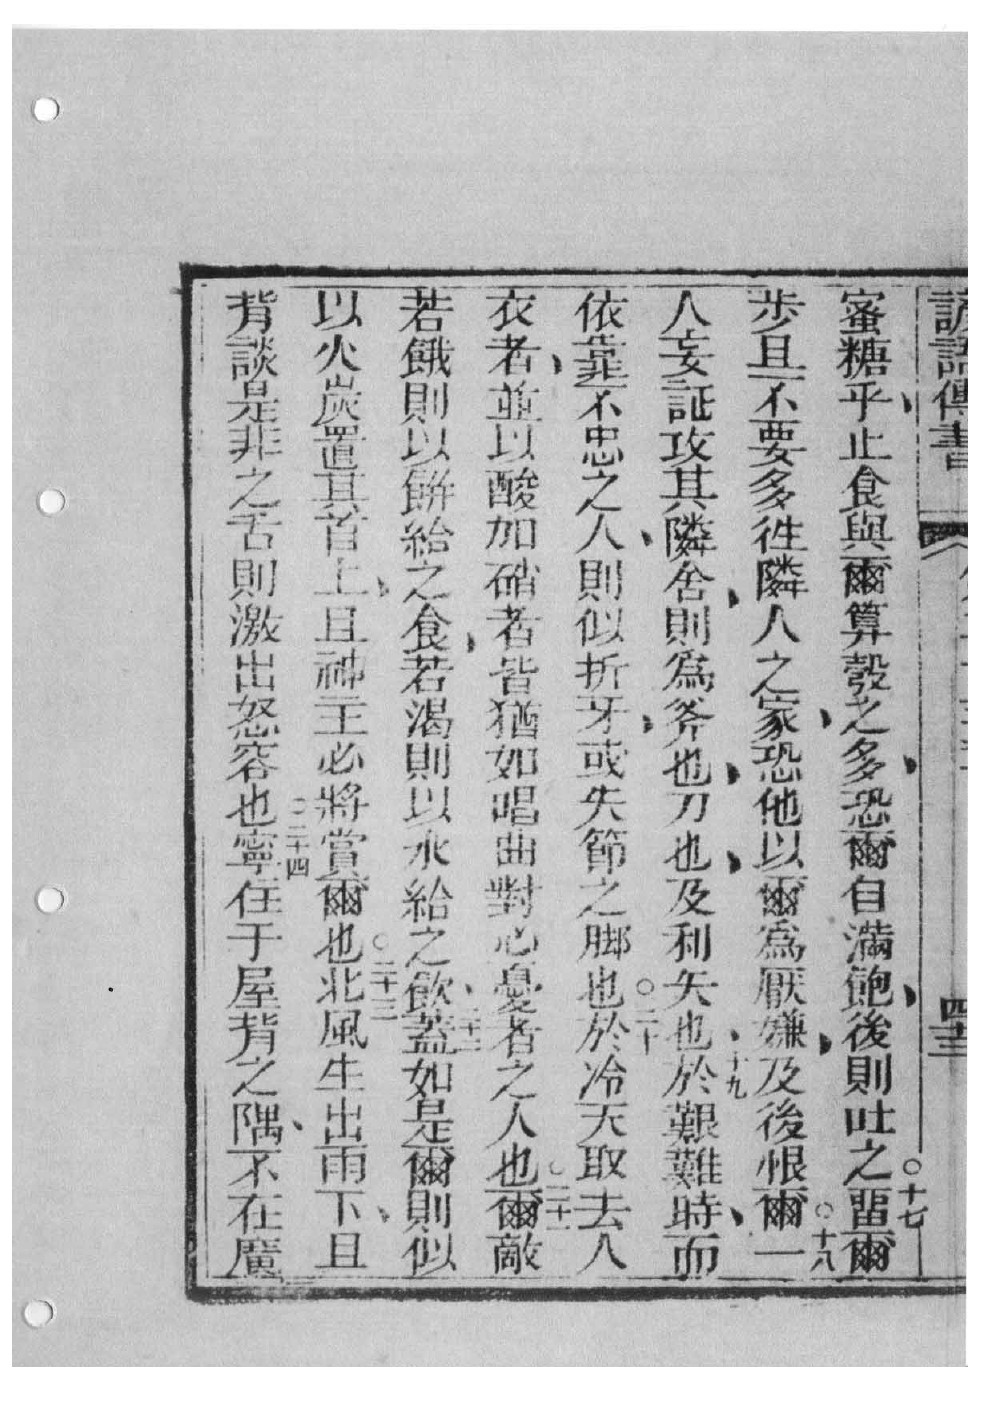 諺語傳書
四十三
蜜糖乎、止食與爾算彀之多、恐爾自滿飽、後則吐之○十七畱爾
步且不要多徃隣人之家、恐他以爾爲厭嫌、及後恨爾○十八一
人妄証攻其隣舍、則爲斧也、刀也、及利矢也、十九於艱難時、而
依靠不忠之人、則似折牙、或失節之脚也○二十於冷天取去人
衣者、並以酸加硝者、皆猶如唱曲對心憂者之人也○二十一爾敵
若餓則以餅給之食、若渴則以水給之飲、二十二蓋如是爾則似
以火炭置其首上、且神主必將賞爾也○二十三北風生出雨下、且
背談是非之舌則激出怒容也○二十四寧住于屋背之隅、不在廣